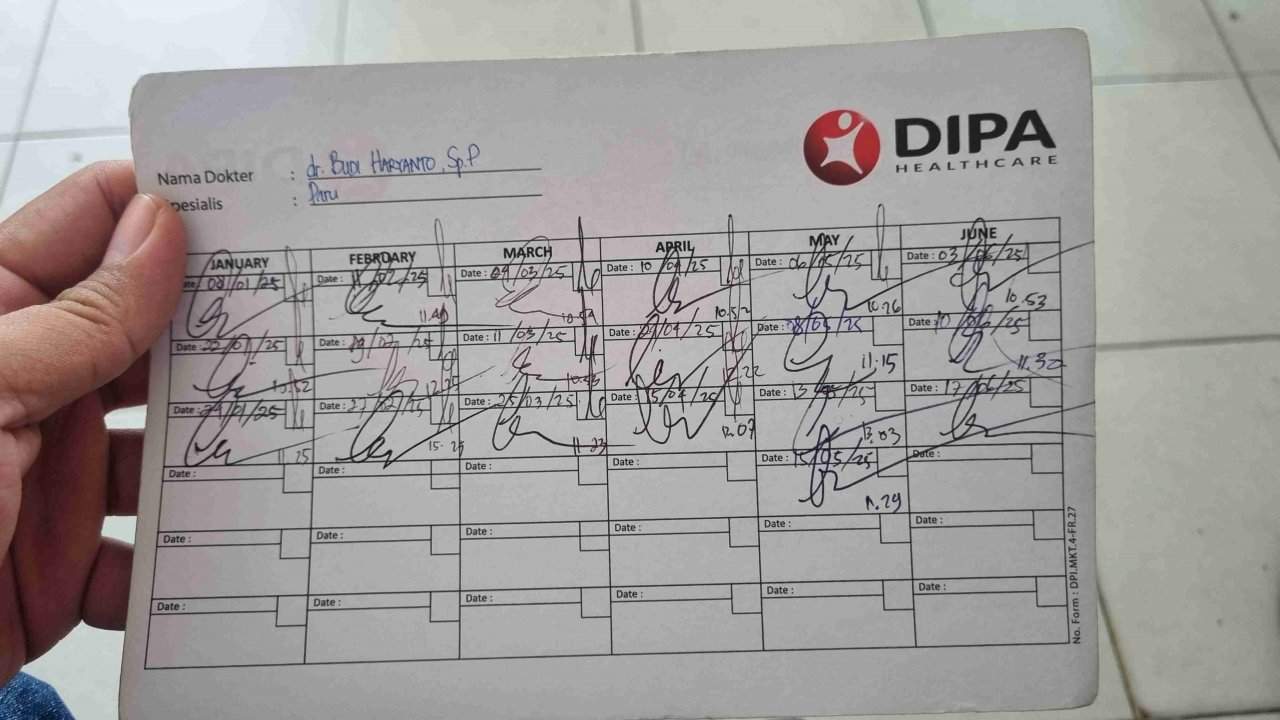 DIPA
HEALTHCARE
Nama Dokter : dr. BUDI HARYANTO, Sp.P
Spesialis : Paru
JANUARY FEBRUARY MARCH APRIL MAY JUNE
/01/25 Date : 11/02/25 Date : 04/03/25 Date : 10/04/25 Date : 06/05/25 Date : 03/06/25
11.40 10.54 10.52 10.26 10.53
Date : /02/25 Date : 11/03/25 /04/25 Date : 08/05/25 Date : 10/06/25
10.52 11.15 11.30
Date : /01/25 Date : 27/02/25 Date : 25/03/25 Date : 15/04/25 Date : 13/05/25 Date : 17/06/25
11.25 15.25 11.23 12.07 13.03
Date : Date : Date : Date : Date : 15/05/25 Date :
11.29
Date : Date : Date : Date : Date : Date :
Date : Date : Date : Date : Date : Date :
No. Form : DPI.MKT.4-FR.27